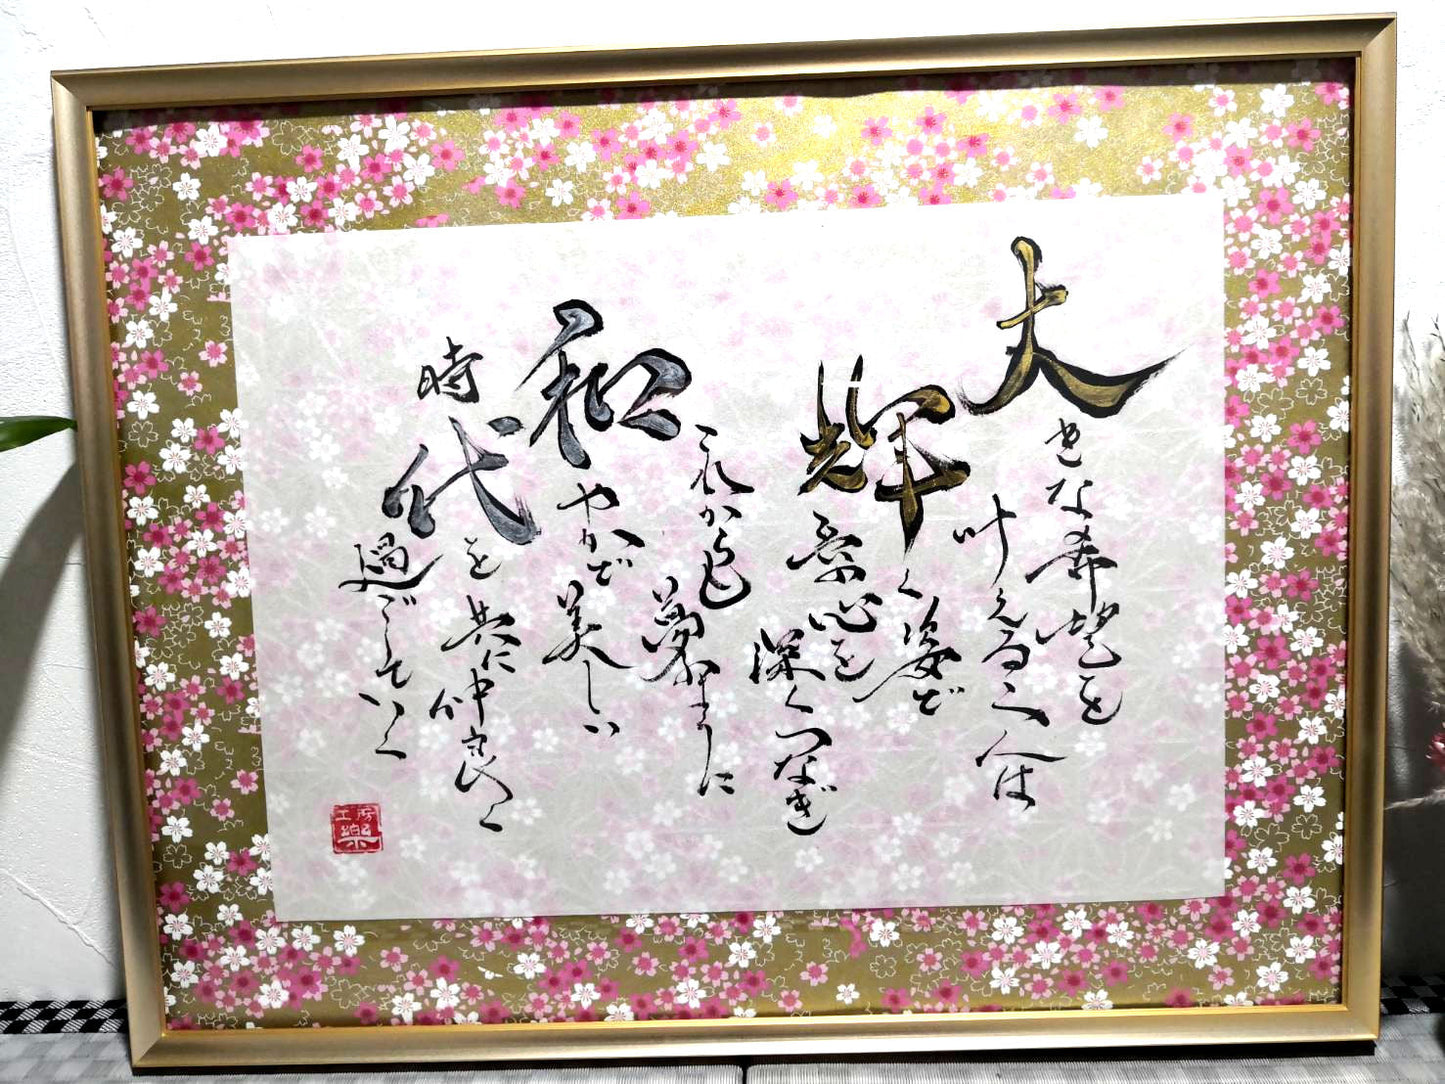 大きな希望を
叶える人は
輝く姿で
心を
深くつなぎ
これからも
夢のように
和やかで美しい
時代を共に仲良く
過ごしていく
工房
樂